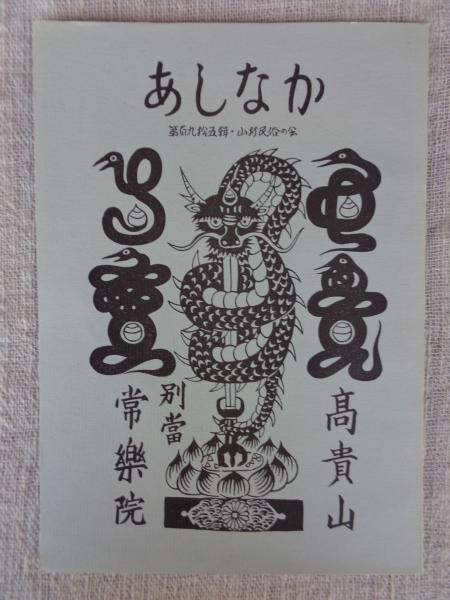 あしなか
第百九拾五輯・山村民俗の会
髙貴山
別當
常樂院